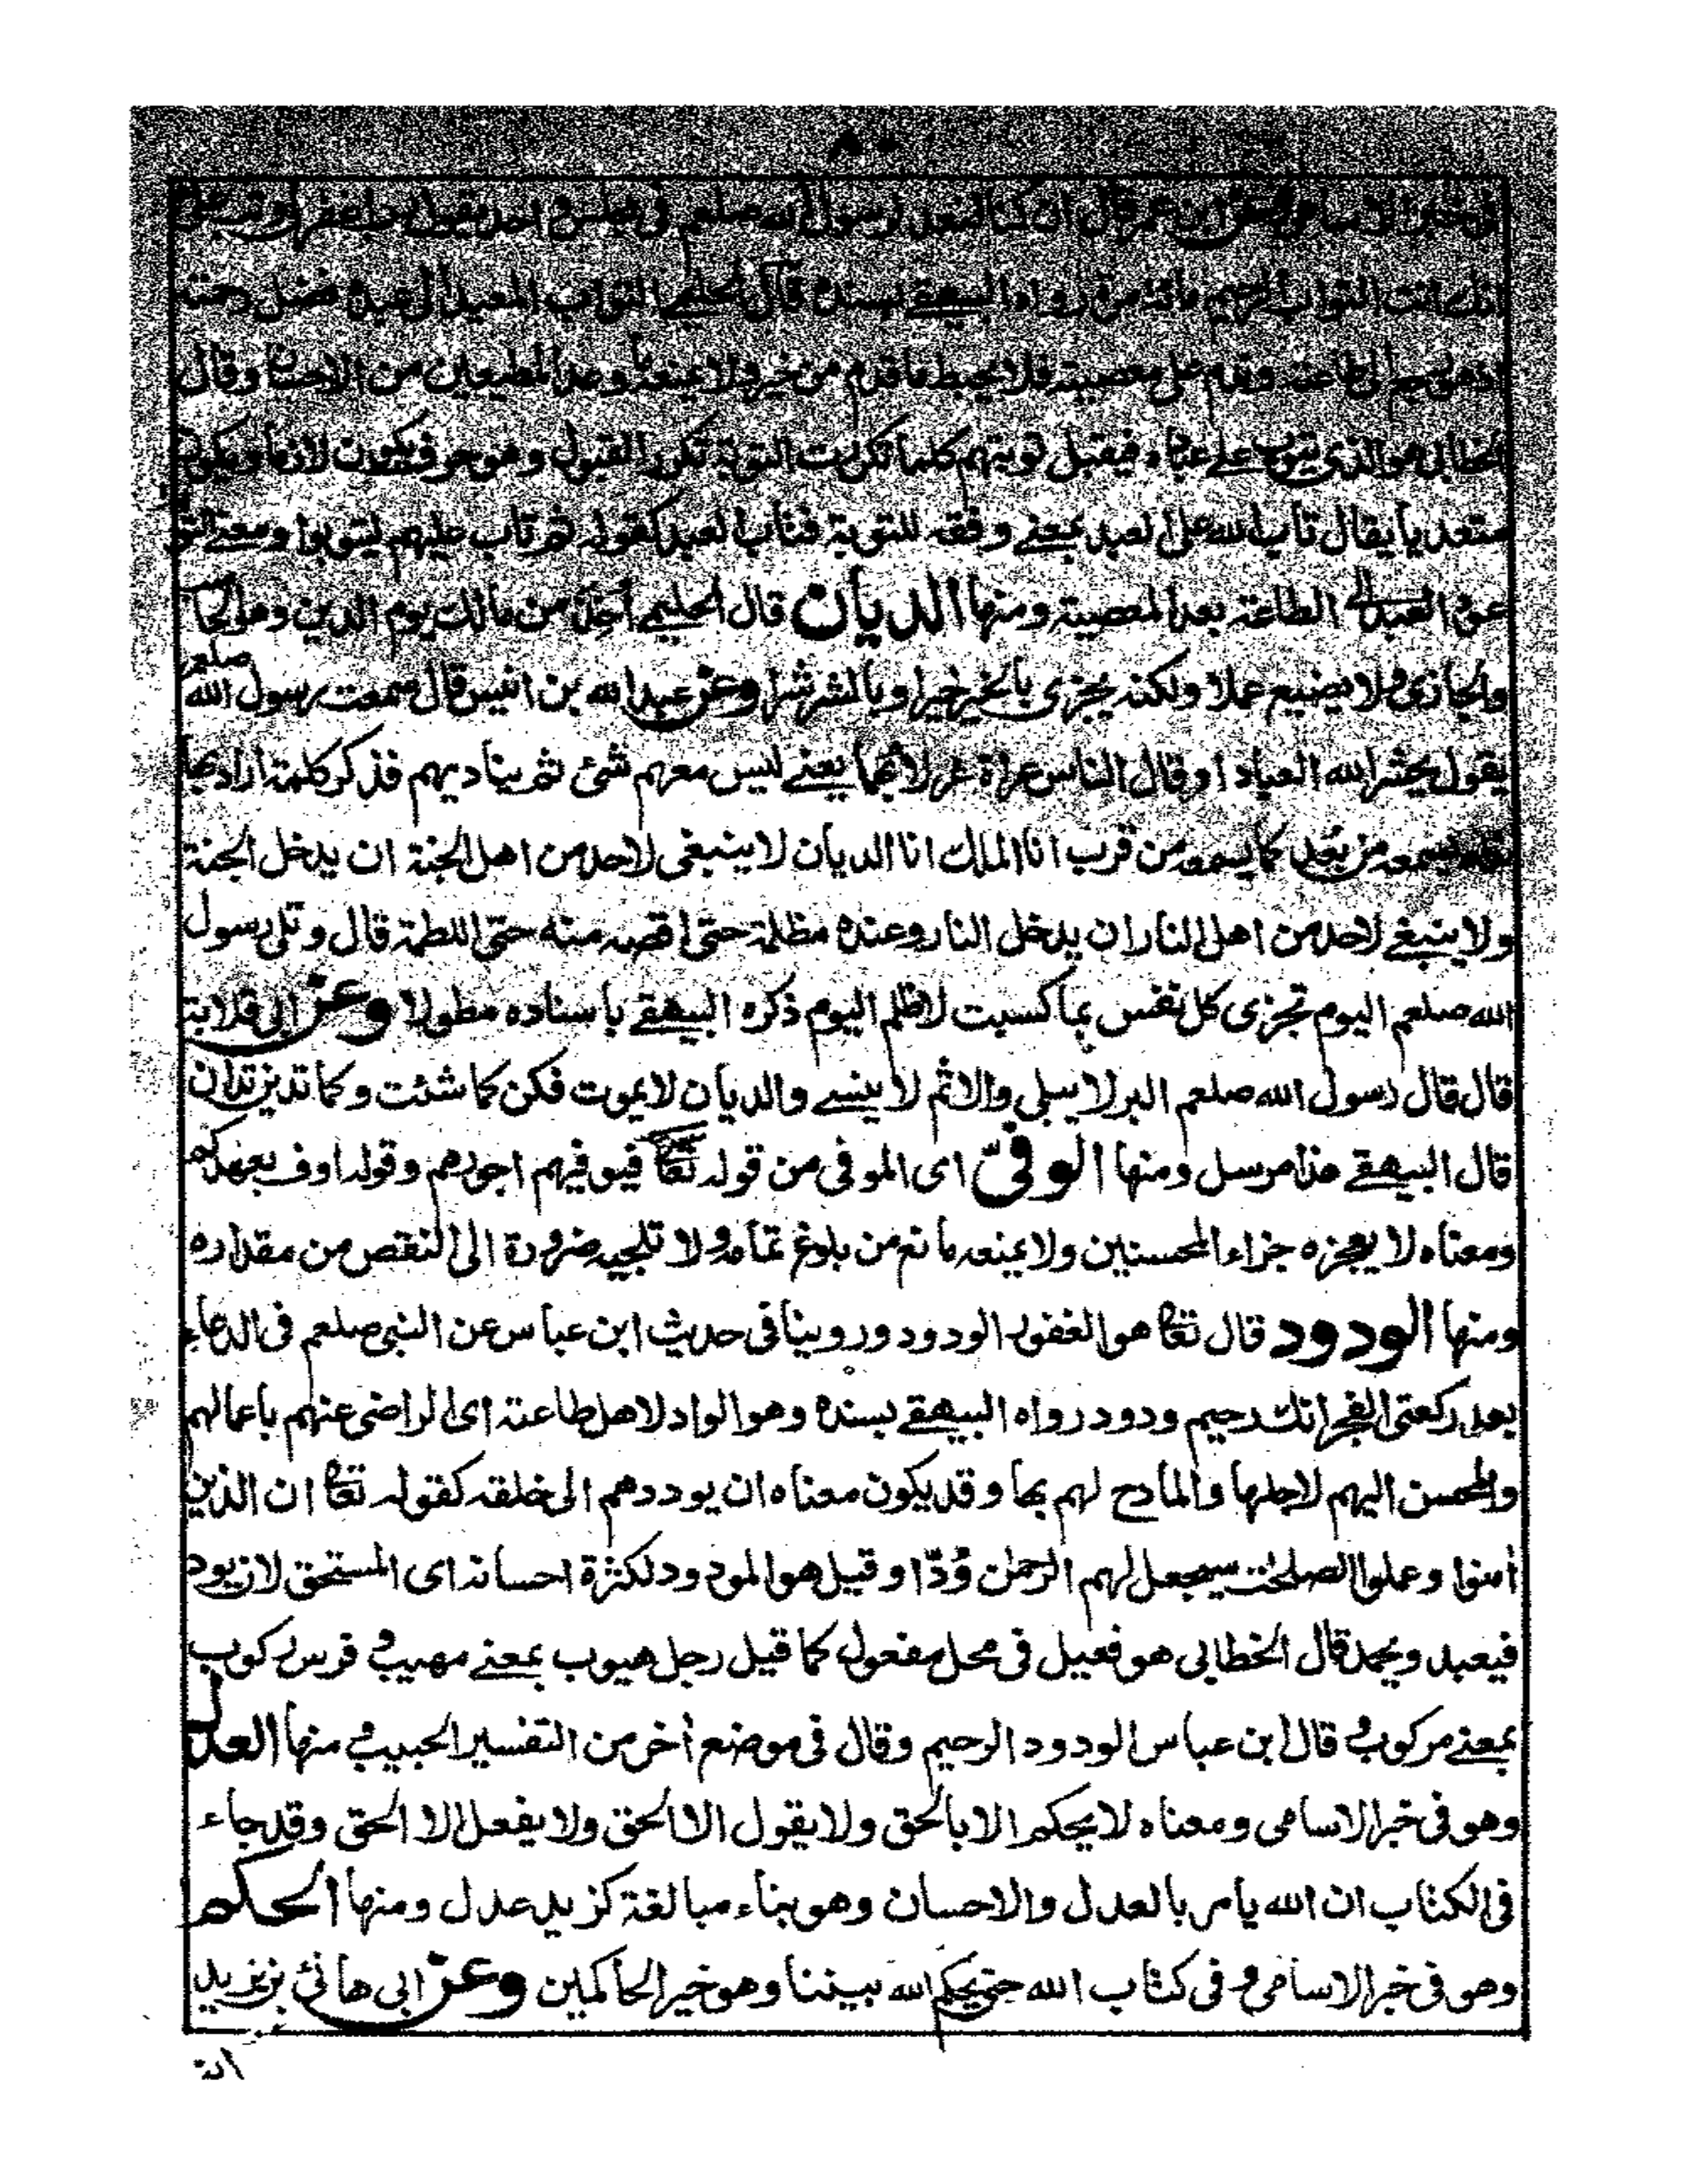 فى خبر الاسامى وعن ابن عمر قال ان كنا لنعد لرسول الله صلعم فى مجلس واحد يقول رب اغفر لى وتب على
انك انت التواب الرحيم مائة مرة رواه البيهقے بسنده قال الحليمے التواب المعيد الى عبده فضل رحمته
اذا هو رجع الى طاعته وندم على معصيته فلا يحبط ما قدم من خير ولا يمنعه ما وعد المطيعين من الاحسان وقال
الخطابى هو الذى يتوب على عباده فيقبل توبتهم كلما تكررت التوبة تكرر القبول وهو حرف يكون لازما ويكون
متعديا يقال تاب الله على العبد بمعنے وفقه للتوبة فتاب العبد كقوله ثم تاب عليهم ليتوبوا ومعنے التو
عود العبد الى الطاعة بعد المعصية ومنها الديان قال الحليمے اخذ من مالك يوم الدين وهو الحاسب
والمجازى ولا يضيع عملا ولكنه يجزى بالخير خيرا وبالشر شرا وعن عبد الله بن انيس قال سمعت رسول الله صلعم
يقول يحشر الله العباد او قال الناس عراة غرلا بهما يعنے ليس معهم شئ ثم يناديهم فذكر كلمة اراد بها
يسمعه من بعد كما يسمعه من قرب انا الملك انا الديان لا ينبغى لاحد من اهل الجنة ان يدخل الجنة
ولا ينبغے لاحد من اهل النار ان يدخل النار وعنده مظلمة حتى اقصه منه حتى اللطمة قال وتلى رسول
الله صلعم اليوم تجزى كل نفس بما كسبت لا ظلم اليوم ذكره البيهقے باسناده مطولا وعن ابى قلابة
قال قال رسول الله صلعم البر لا يبلى والاثم لا ينسے والديان لا يموت فكن كما شئت وكما تدين تدان
قال البيهقے هذا مرسل ومنها الوفىّ اى الموفى من قوله تعالى فيوفيهم اجورهم وقوله اوف بعهدكم
ومعناه لا يعجزه جزاء المحسنين ولا يمنعه مانع من بلوغ تمامه ولا تلجيه ضرورة الى النقص من مقداره
ومنها الودود قال تعالى هو الغفور الودود وروينا فى حديث ابن عباس عن النبى صلعم فى الدعاء
بعد ركعتى الفجر انك رحيم ودود رواه البيهقے بسنده وهو الواد لاهل طاعته اى الراضى عنهم باعمالهم
والمحسن اليهم لاجلها والمادح لهم بها وقد يكون معناه ان يوددهم الى خلقه كقوله تعالى ان الذين
اٰمنوا وعملوا الصلحٰت سيجعل لهم الرحمٰن وُدّا وقيل هو المودود لكثرة احسانه اى المستحق لان يود
فيعبد ويحمد قال الخطابى هو فعيل فى محل مفعول كما قيل رجل هيوب بمعنے مهيب وفرس ركوب
بمعنے مركوب وقال ابن عباس الودود الرحيم وقال فى موضع اٰخر من التفسير الحبيب ومنها العدل
وهو فى خبر الاسامى ومعناه لا يحكم الا بالحق ولا يقول الا الحق ولا يفعل الا الحق وقد جاء
فى الكتاب ان الله يامر بالعدل والاحسان وهو بناء مبالغة كزيد عدل ومنها الحكم
وهو فى خبر الاسامى وفى كتاب الله حتى يحكم الله بيننا وهو خير الحاكمين وعن ابى هانئ بن يزيد
انه